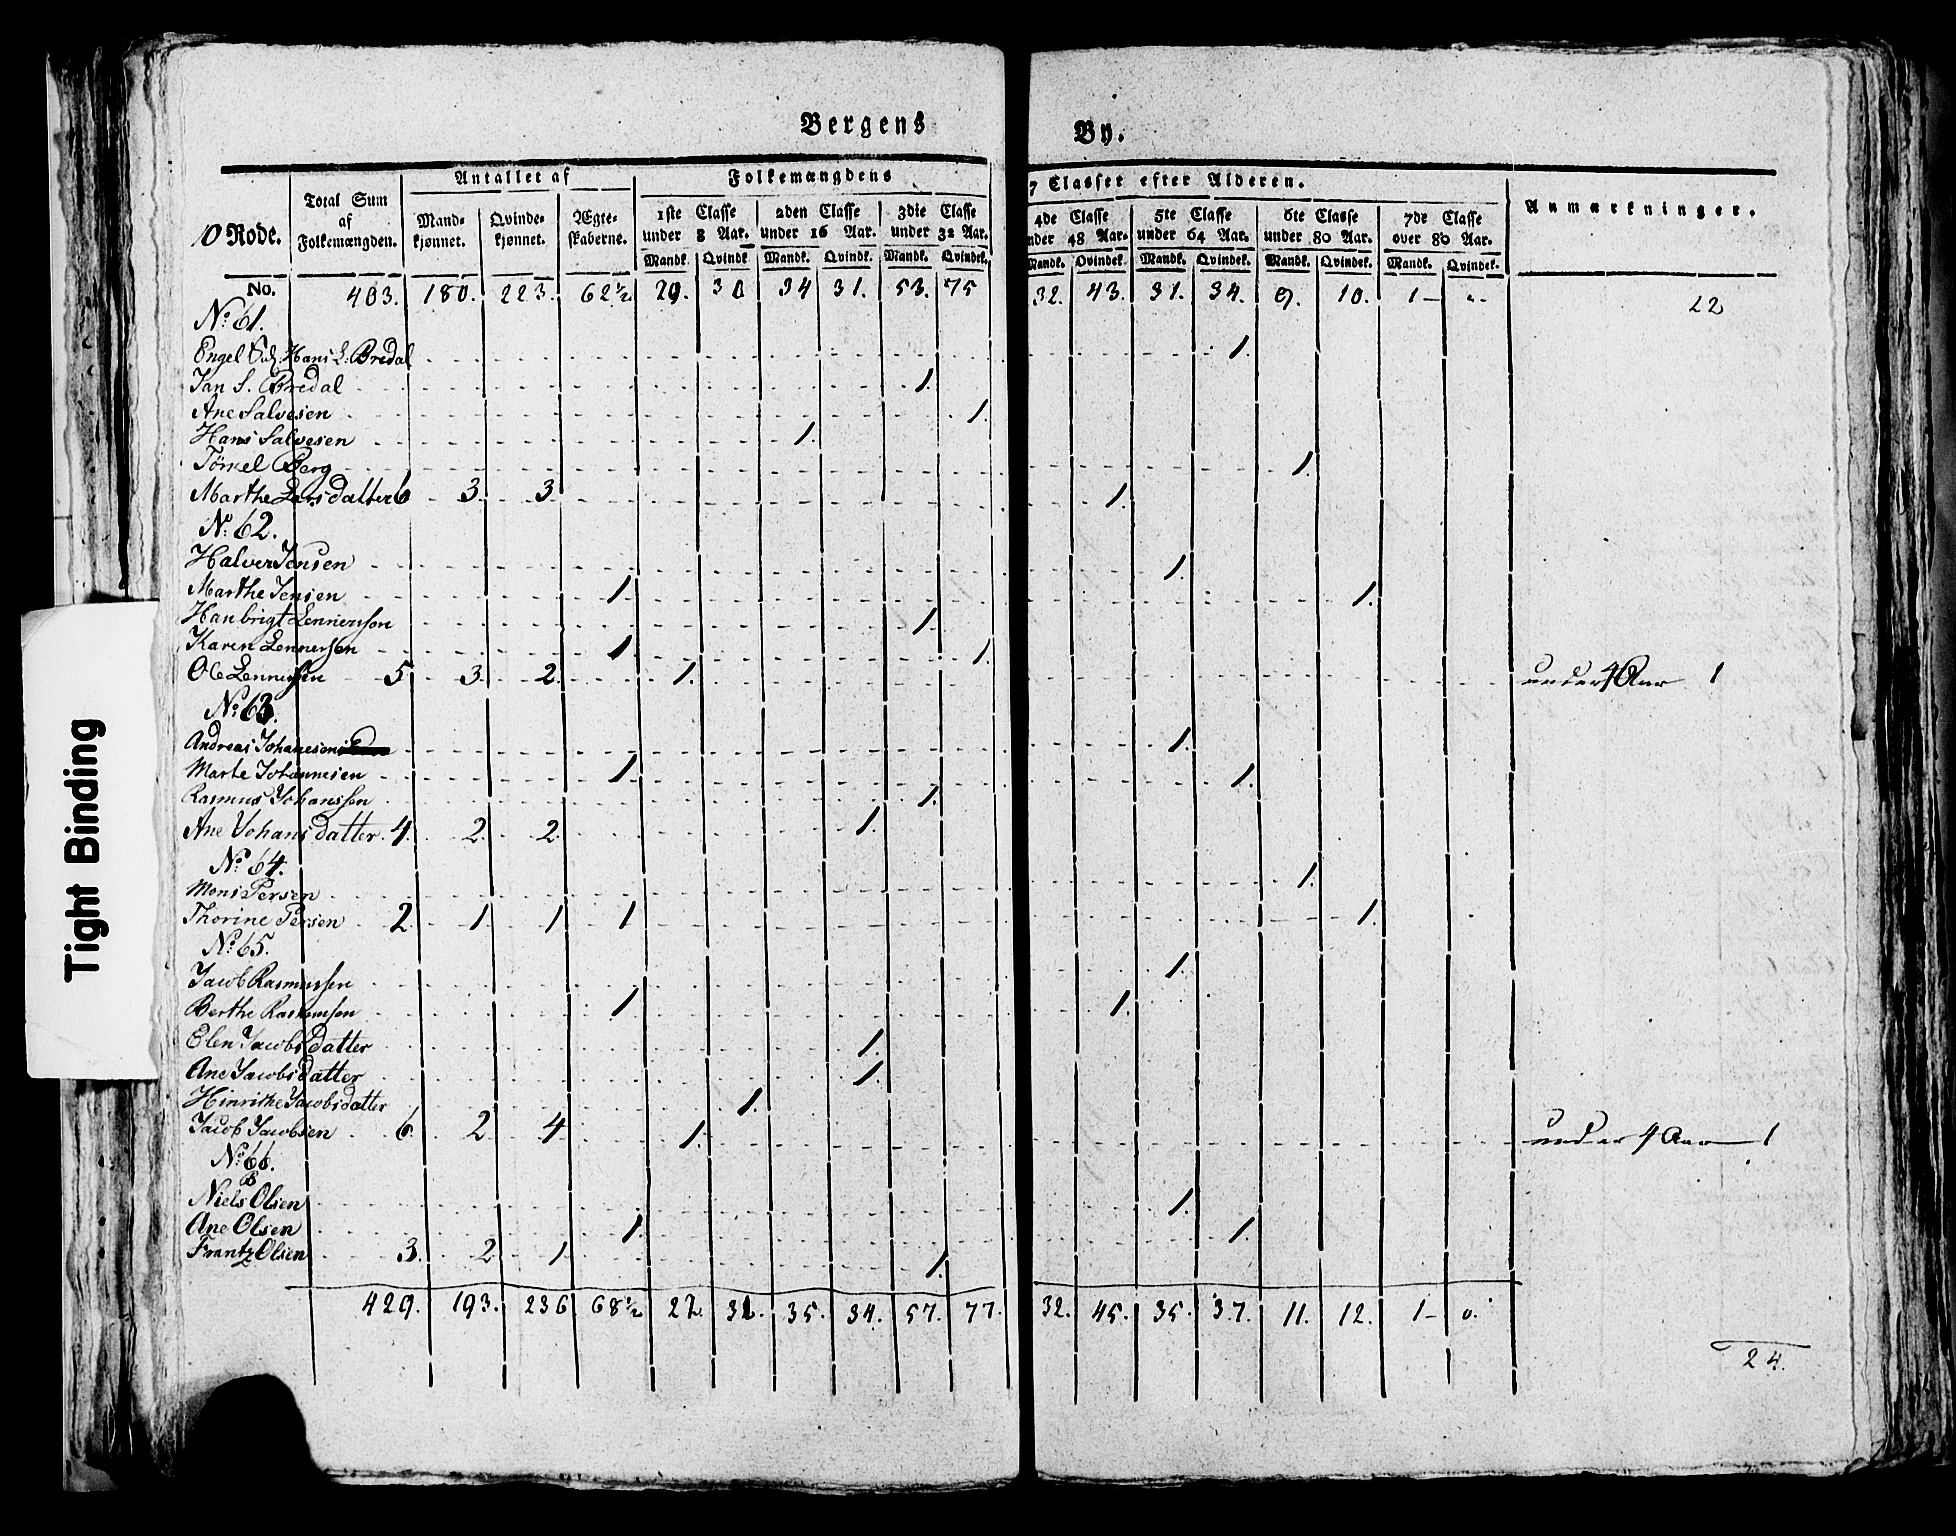 Bergens By.
10 Rode. Total Sum af Folkemængden. Antallet af Folkemængdens 7 Classer efter Alderen. Anmærkninger.
Mandkjønnet. Qvindekjønnet. Ægteskaberne. 1ste Classe under 8 Aar. 2den Classe under 16 Aar. 3die Classe under 32 Aar. 4de Classe under 48 Aar. 5te Classe under 64 Aar. 6te Classe under 80 Aar. 7de Classe over 80 Aar.
Mandk. Qvindk. Mandk. Qvindk. Mandk. Qvindek. Mandk. Qvindek. Mandk. Qvindek. Mandk. Qvindek. Mandk. Qvindek.
No. 403. 180. 223. 62½ 20. 30 34 31. 53. 75 32. 43. 31. 34. 9. 10. 1 22
No 61.
Engel Hans L: Bredal 1.
Jan S. Bredal 1.
Ane Salvesen 1.
Hans Salvesen 1.
Berg 1.
Marthe Larsdatter 6 3. 3. 1.
No 62.
Halver Jensen 1.
Marthe Jensen 1. 1.
Hanbrigt Lennersøn 1.
Karen Lennersen 1. 1.
Ole Lennersen 5. 3. 2. 1. under 4 Aar 1
No 63.
Andreas Johanesen 1.
Marte Johannesen 1. 1.
Rasmus Johanssen 1.
Ane Johansdatter. 4. 2. 2. 1.
No 64.
Mons Persen 1.
Thorine Persen 2. 1. 1. 1 1.
No 65.
Jacob Rasmussen 1.
Berthe Rasmusen 1. 1.
Elen Jacobsdatter 1.
Ane Jacobsdatter 1.
Hinrikke Jacobsdatter 1.
Jacob Jacobsen 6. 2. 4. 1. under 4 Aar 1
No 66.
B
Niels Olsen 1.
Ane Olsen 1. 1.
Frantz Olsen 3. 2. 1. 1.
429. 193. 236 68½ 22. 31. 35. 34. 57. 77. 32. 45. 35. 37. 11. 12. 1 0.
24.
Tight Binding